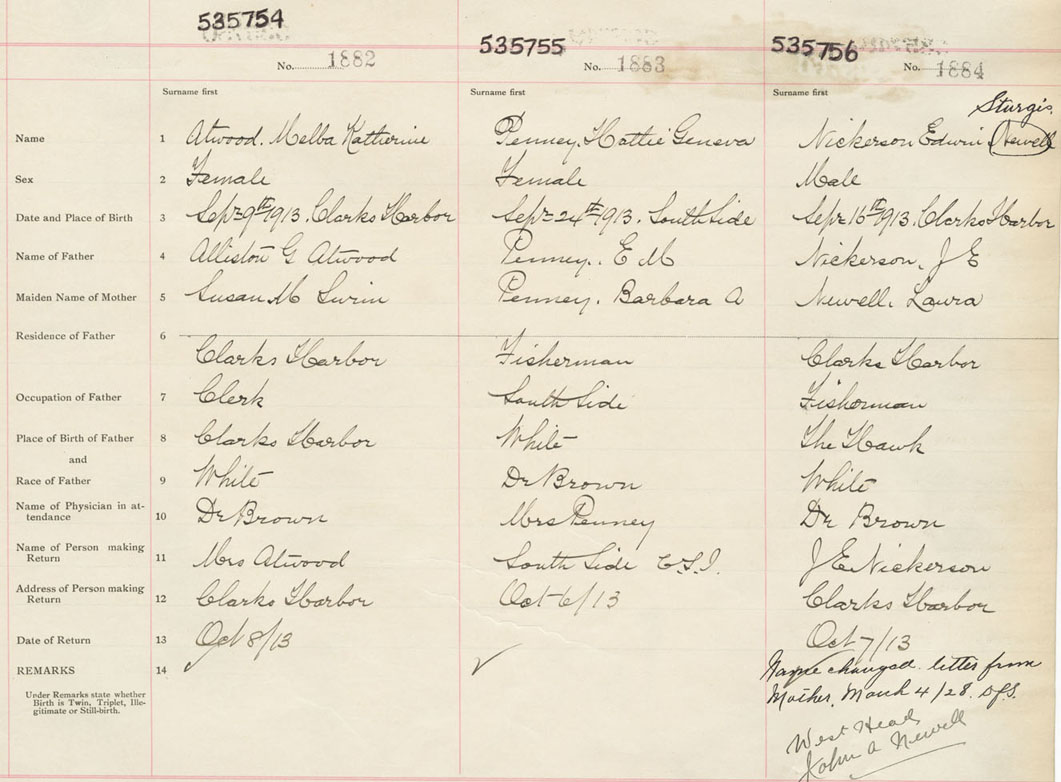 535754
535755
535756
No. 1882
No. 1883
No. 1884
Surname first
Surname first
Surname first
Sturgis.
Name 1 Atwood. Melba Katherine Penney. Hattie Geneva Nickerson Edwin Newell
Sex 2 Female Female Male
Date and Place of Birth 3 Sept 9th 1913. Clarks Harbor Sept 24th 1913. South Side Sept 16th 1913. Clarks Harbor
Name of Father 4 Alliston G Atwood Penney. E M Nickerson, J E
Maiden Name of Mother 5 Susan M Swim Penney. Barbara A Newell. Laura
Residence of Father 6
Clarks Harbor Fisherman Clarks Harbor
Occupation of Father 7 Clerk South Side Fisherman
Place of Birth of Father 8 Clarks Harbor White The Hawk
and
Race of Father 9 White Dr Brown White
Name of Physician in at-
tendance 10 Dr Brown Mrs Penney Dr Brown
Name of Person making
Return 11 Mrs Atwood South Side C.S.I. J E Nickerson
Address of Person making
Return 12 Clarks Harbor Oct 6/13 Clarks Harbor
Date of Return 13 Oct 8/13 Oct 7/13
REMARKS 14 Name changed. letter from
Mother, March 4/28.
Under Remarks state whether
Birth is Twin, Triplet, Ille-
gitimate or Still-birth.
West Head
John A Newell